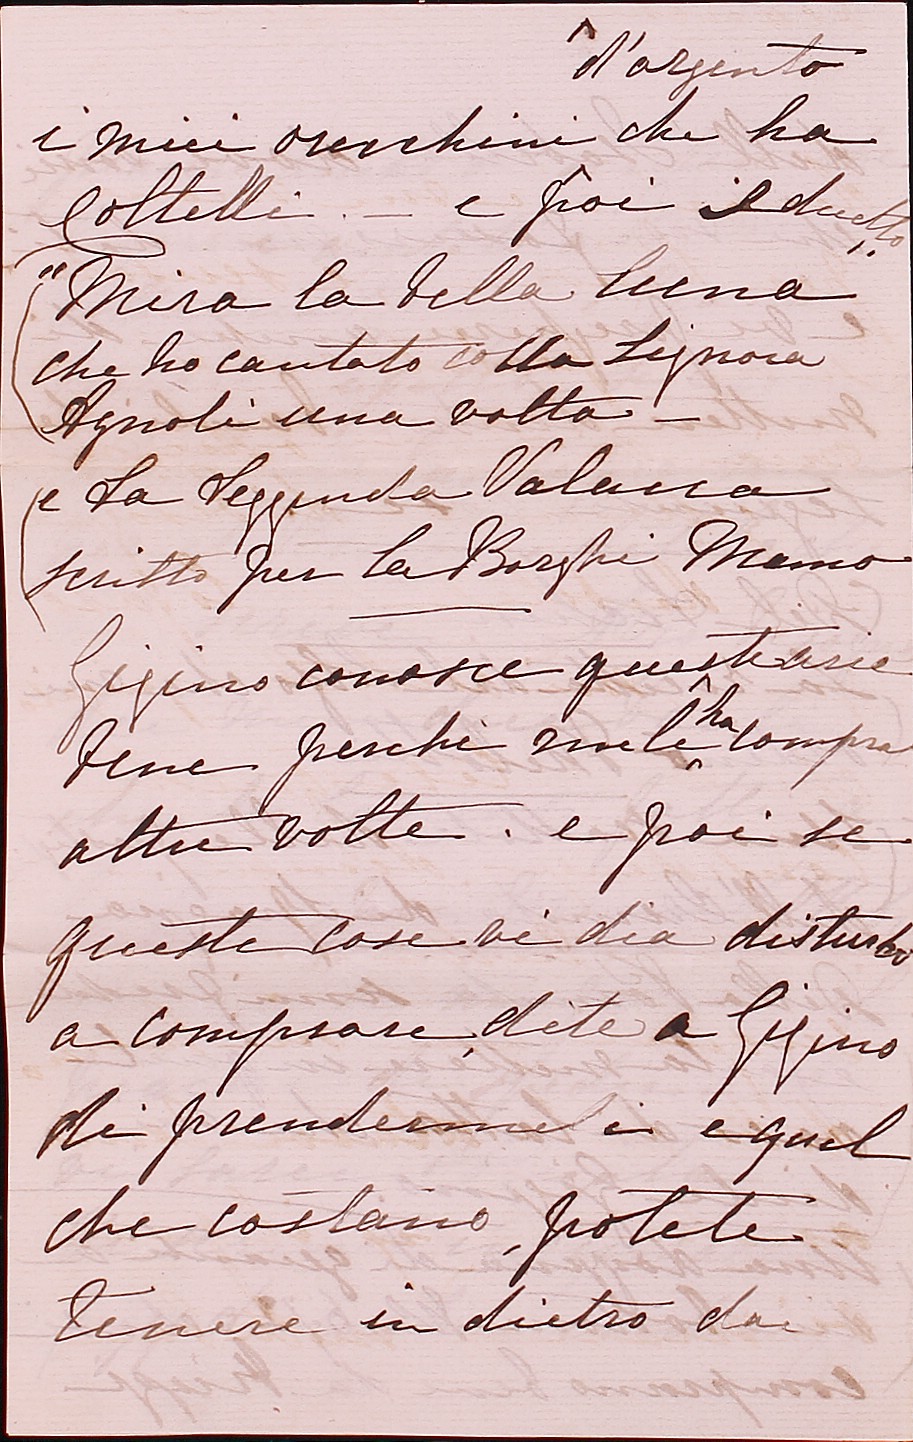 d'argento
i miei orecchini che ha
Coltelli. — e poi il duetto
"Mira la bella luna"
che ho cantato colla Signora
Agnoli una volta —
e La Leggenda Valacca
scritto per la Borghi Mamo
Gigino conosce queste arie
bene perchè me le ha compra
altre volte. e poi se
queste cose vi dia disturbo
a comprare, dite a Gigino
di prendermeli e quel
che costano, potete
tenere in dietro dai